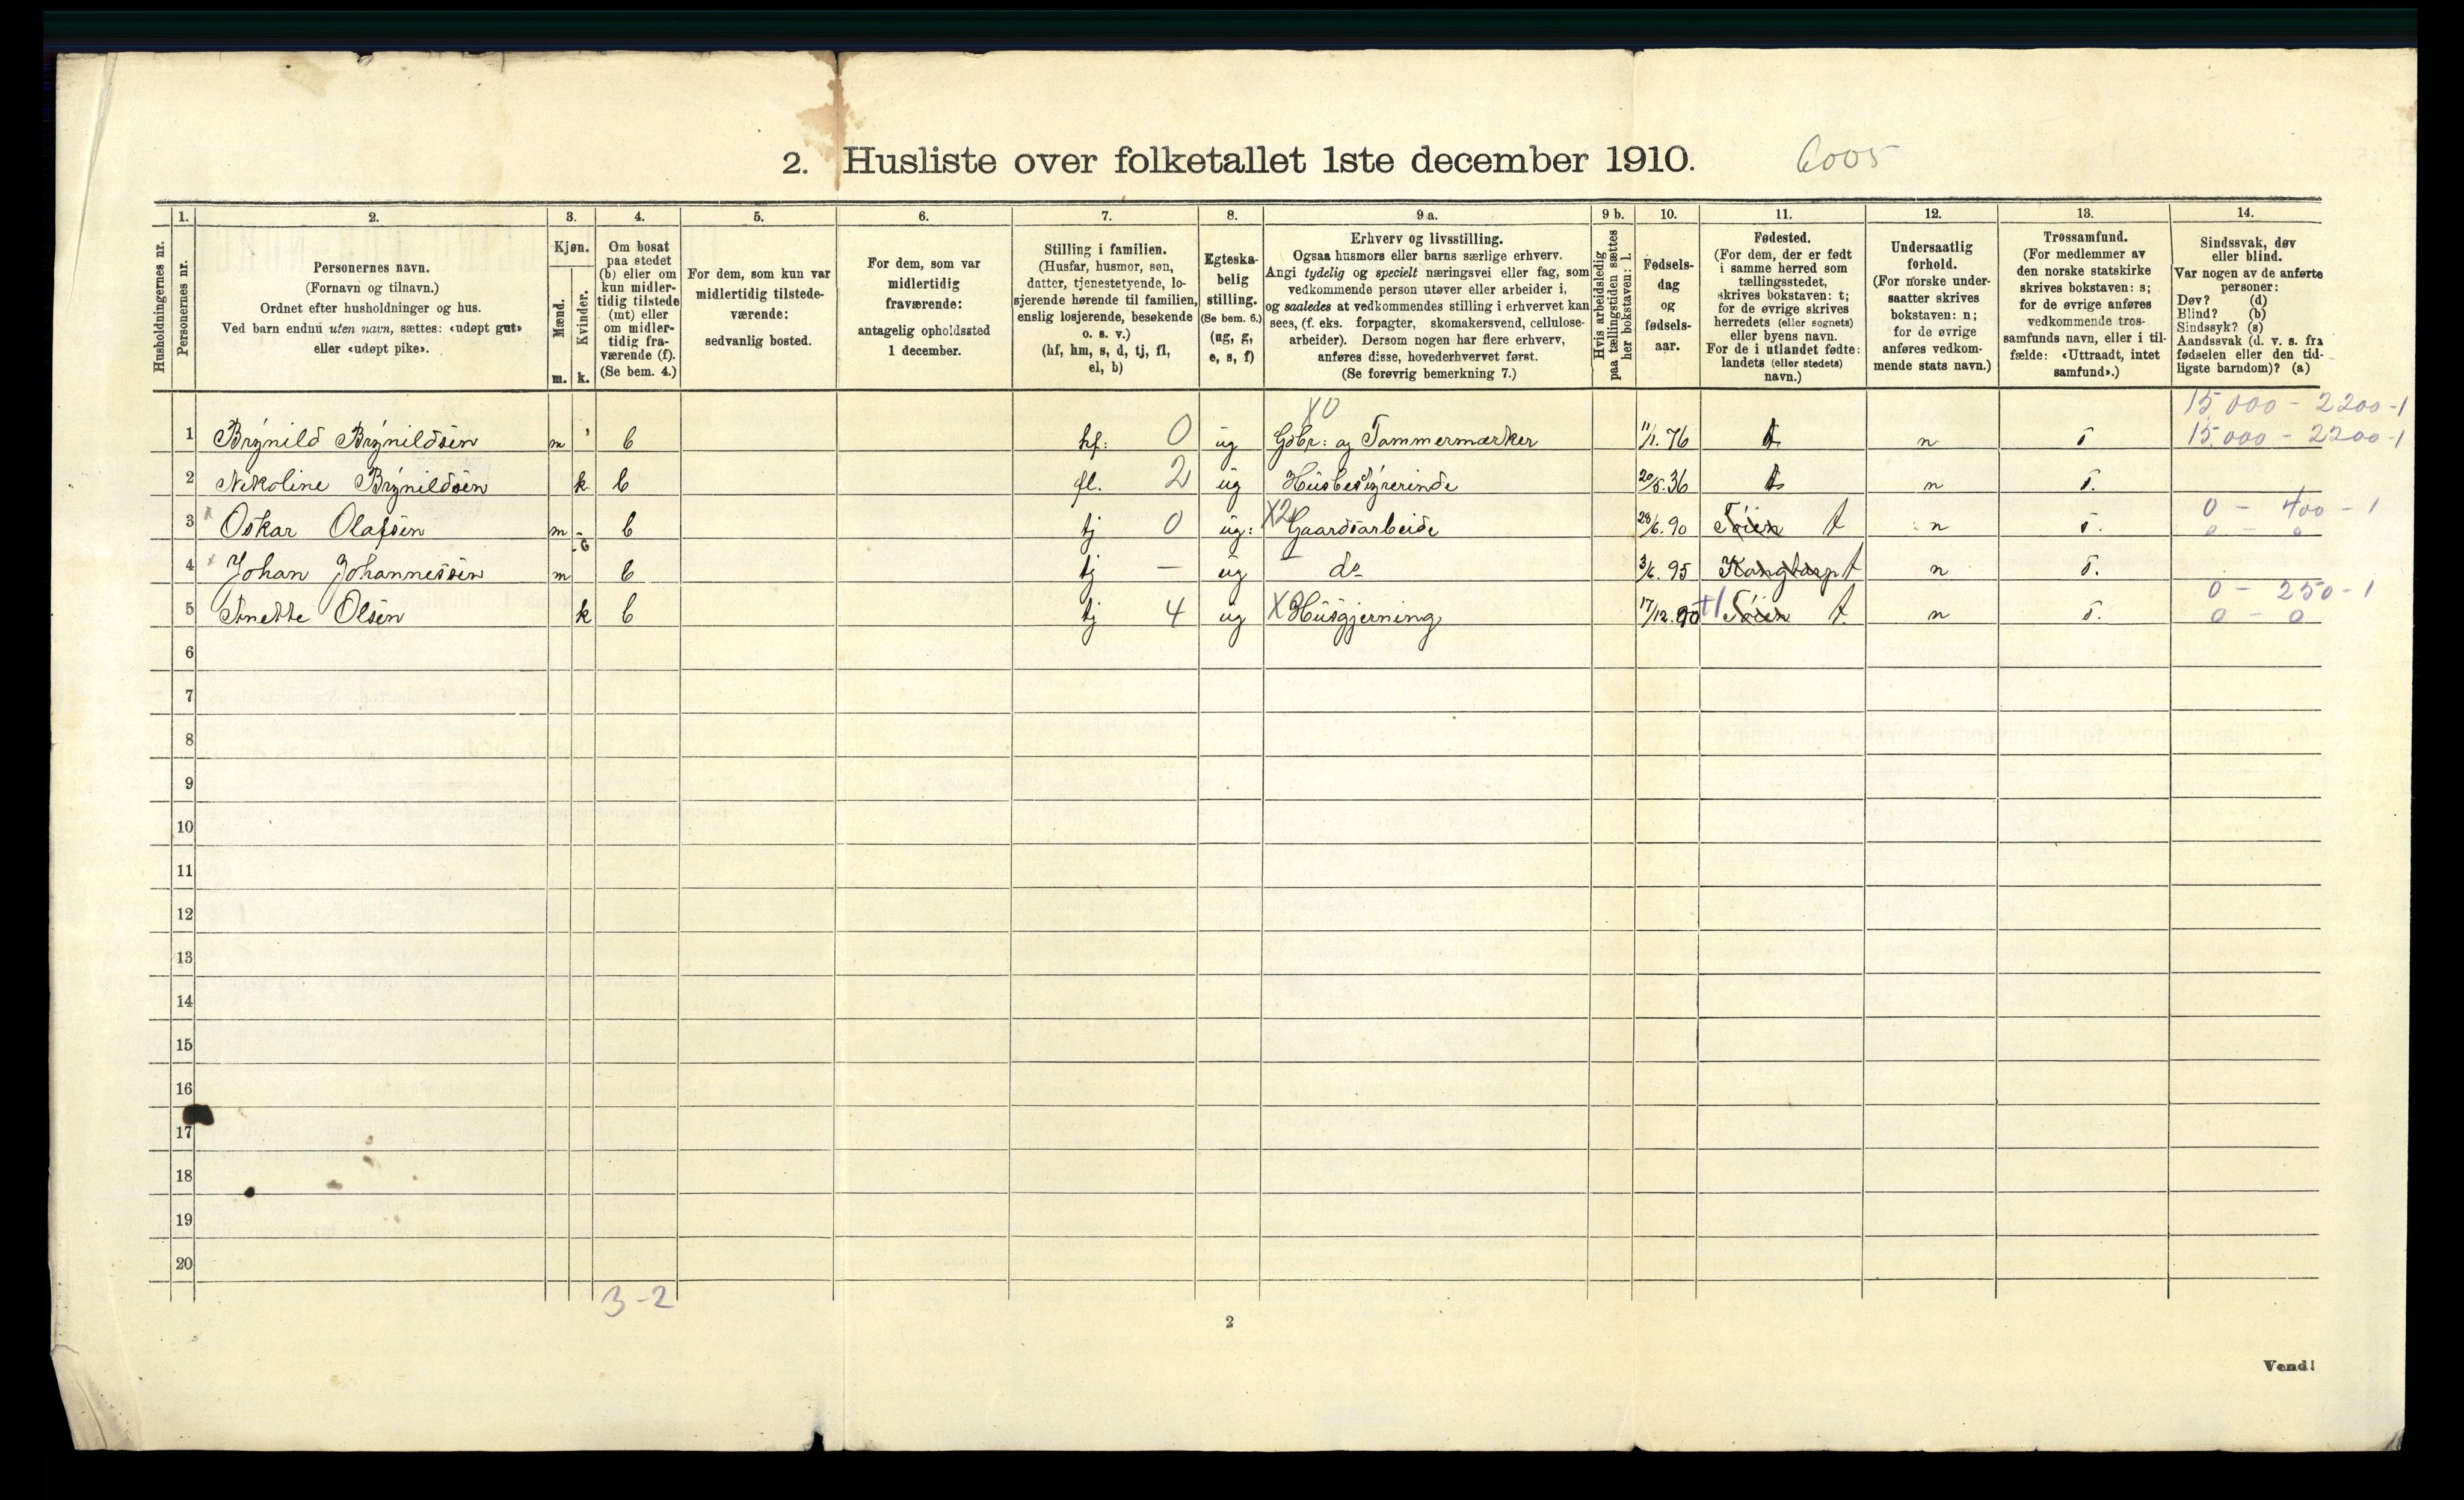 2. Husliste over folketallet 1ste december 1910. 6005
Husholdningernes nr.
1.
Personernes nr.
2.
Personernes navn.
(Fornavn og tilnavn.)
Ordnet efter husholdninger og hus.
Ved barn endnu uten navn, sættes: «udøpt gut»
eller «udøpt pike».
3.
Kjøn.
Mænd.
m.
Kvinder.
k.
4.
Om bosat
paa stedet
(b) eller om
kun midler-
tidig tilstede
(mt) eller
om midler-
tidig fra-
værende (f).
(Se bem. 4.)
5.
For dem, som kun var
midlertidig tilstede-
værende:
sedvanlig bosted.
6.
For dem, som var
midlertidig
fraværende:
antagelig opholdssted
1 december.
7.
Stilling i familien.
(Husfar, husmor, søn,
datter, tjenestetyende, lo-
sjerende hørende til familien,
enslig losjerende, besøkende
o. s. v.)
(hf, hm, s, d, tj, fl,
el, b)
8.
Egteska-
belig
stilling.
(Se bem. 6.)
(ug, g,
e, s, f)
9 a.
Erhverv og livsstilling.
Ogsaa husmors eller barns særlige erhverv.
Angi tydelig og specielt næringsvei eller fag, som
vedkommende person utøver eller arbeider i,
og saaledes at vedkommendes stilling i erhvervet kan
sees, (f. eks. forpagter, skomakersvend, cellulose-
arbeider). Dersom nogen har flere erhverv,
anføres disse, hovederhvervet først.
(Se forøvrig bemerkning 7.)
9 b.
Hvis arbeidsledig
paa tællingstiden sættes
her bokstaven: l.
10.
Fødsels-
dag
og
fødsels-
aar.
11.
Fødested.
(For dem, der er født
i samme herred som
tællingsstedet,
skrives bokstaven: t;
for de øvrige skrives
herredets (eller sognets)
eller byens navn.
For de i utlandet fødte:
landets (eller stedets)
navn.)
12.
Undersaatlig
forhold.
(For norske under-
saatter skrives
bokstaven: n;
for de øvrige
anføres vedkom-
mende stats navn.)
13.
Trossamfund.
(For medlemmer av
den norske statskirke
skrives bokstaven: s;
for de øvrige anføres
vedkommende tros-
samfunds navn, eller i til-
fælde: «Uttraadt, intet
samfund».)
14.
Sindssvak, døv
eller blind.
Var nogen av de anførte
personer:
Døv? (d)
Blind? (b)
Sindssyk? (s)
Aandssvak (d. v. s. fra
fødselen eller den tid-
ligste barndom)? (a)
X0 15.000 - 2200 - 1
1 Brynild Brynildsen m b hf: 0 ug Gdbr: og Tømmermærker 11/1. 76 t n s 15.000 - 2200 - 1
2 Nikoline Brynildsen k b fl. 2 ug Husbestyrerinde 20/5. 36 t n s.
0 - 400 - 1
3 x Oskar Olafsen m b tj 0 ug: X2 Gaardsarbeide 28/6. 90 t n s. 0 - 0
4 x Johan Johannessen m b tj — ug do 3/6. 95 t n s.
0 - 250 - 1
5 Anette Olsen k b tj 4 ug Husgjerning 17/12. 90 t n s. 0 - 0
6
7
8
9
10
11
12
13
14
15
16
17
18
19
20
3 - 2
2
Vend!